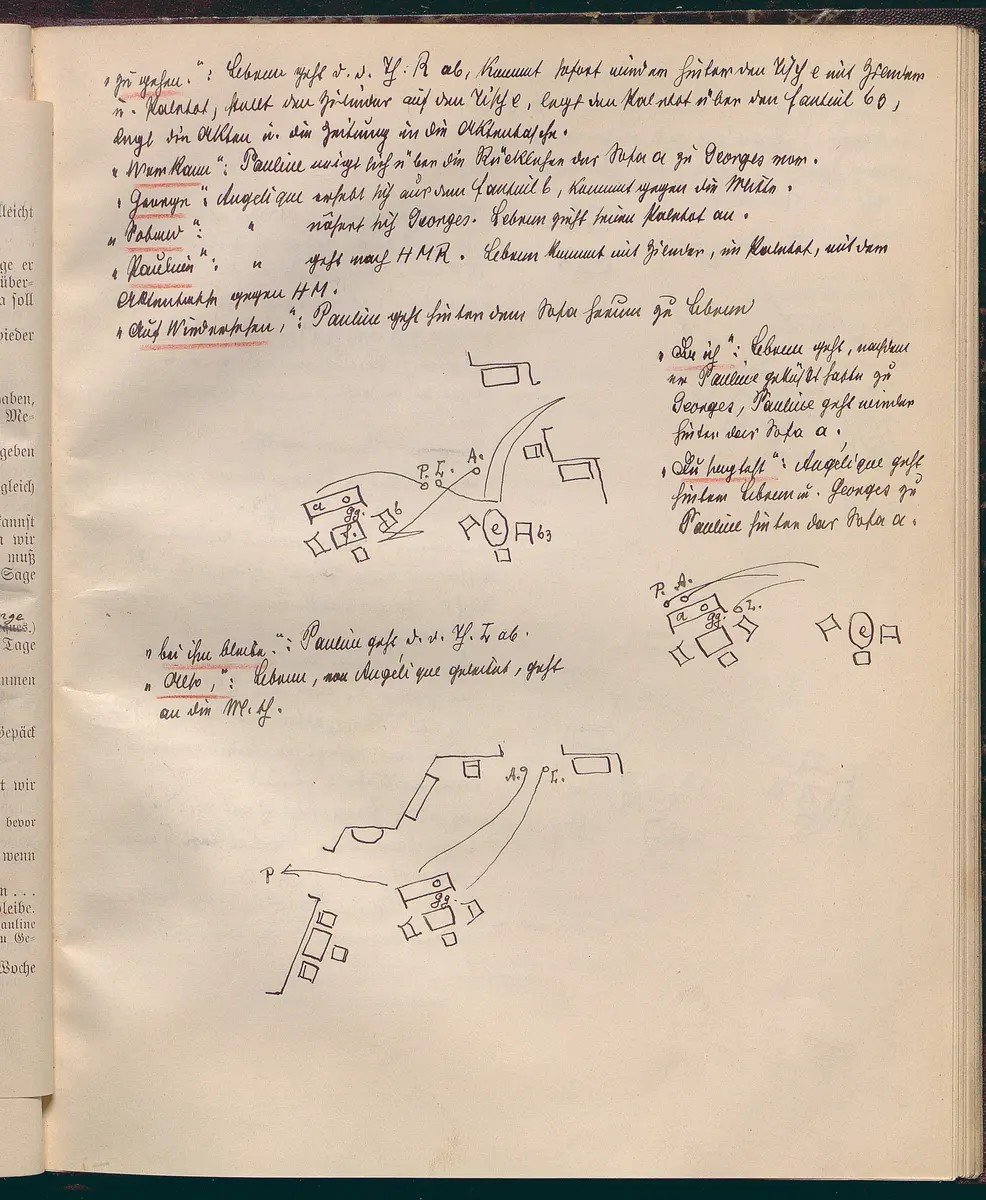 „zu gehen.": Lebrun geht d. d. Th. R ab, kommt sofort wieder hinter den Tisch e mit Zilinder
u. Paletot, stellt den Zilinder auf den Tisch e, legt den Paletot über den Fauteuil b3,
legt die Akten u. die Zeitung in die Aktentasche.
„Wer kann": Pauline neigt sich über die Rücklehne des Sofa a zu Georges vor.
„George": Angelique erhebt sich aus dem Fauteuil b, kommt gegen die Mitte.
": " nähert sich Georges. Lebrun zieht seinen Paletot an.
„Paulinen": " geht nach HMR. Lebrun kommt mit Zilinder, im Paletot, mit dem
Aktentasche gegen HM.
„Auf Wiedersehen,": Pauline geht hinter dem Sofa herum zu Lebrun
ich": Lebrun geht, nachdem
er Pauline geküßt hatte zu
Georges, Pauline geht wieder
hinter das Sofa a.
„Du sagtest": Angélique geht
hinter Lebrun u. Georges zu
Pauline hinter das Sofa a.
P. L. A.
a
gg.
b
e
b3
P. A.
a
gg.
b L.
e
„bei ihm bleibe.": Pauline geht d. d. Th. L ab.
„Also,": Lebrun, von Angélique geleitet, geht
an die M. th.
A. L.
P
gg.
lleicht
ge er
über-
a soll
wieder
aben,
Me-
geben
gleich)
kannst
n wir
muß
Sage
Tage
mmen
Gepäck
t wir
bevor
wenn
n . . .
bleibe.
auline
u Ge-
Woche